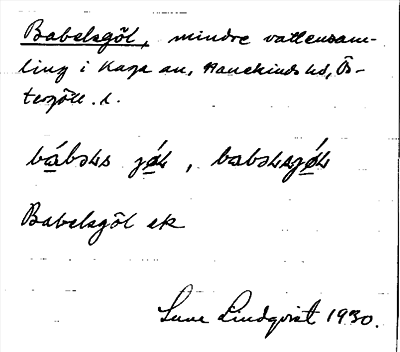 Babelsgöl, mindre vattensam-
ling i Kaga sn, Hanekinds hd, Ös-
tergötl. l.
bábəls jö́l, babəlsjö́l
Babelsgöl ek
Sune Lindqvist 1930.